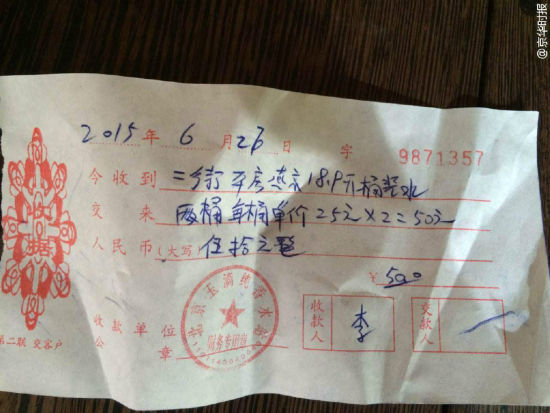 @京华时报
2015年6月26日 字 9871357
收据
今收到 二街平房燕京18.9升桶装水
交来 两桶每桶单价25元×2=50元
人民币(大写)伍拾元整
¥500
收款单位
公章
财务专用章
收款人 李 交款人
第二联 交客户